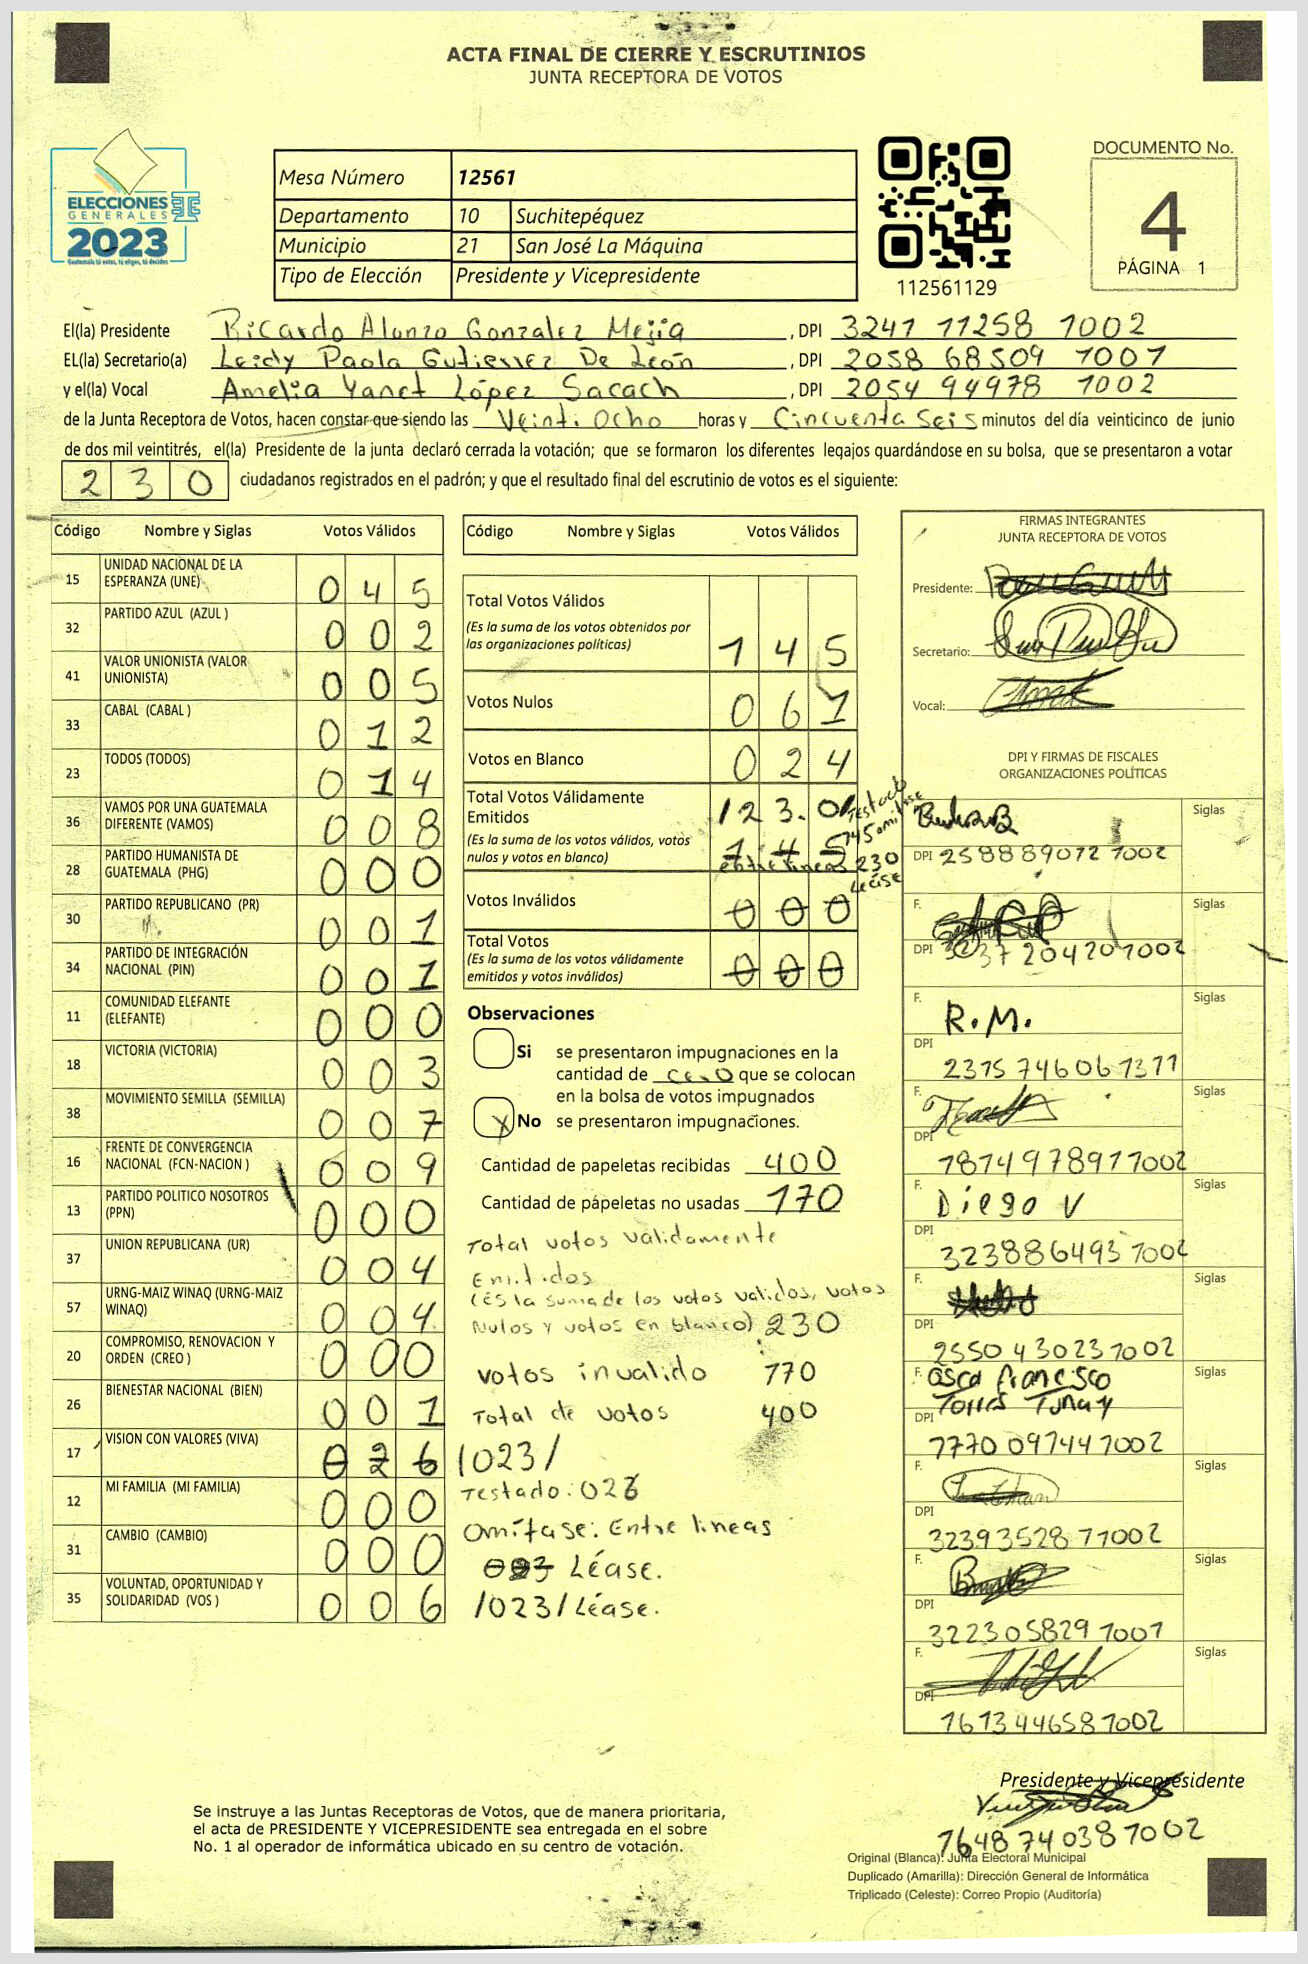 ACTA FINAL DE CIERRE Y ESCRUTINIOS
JUNTA RECEPTORA DE VOTOS
ELECCIONES
GENERALES
2023
Guatemala tú votas, tú eliges, tú decides
Mesa Número 12561
Departamento 10 Suchitepéquez
Municipio 21 San José La Máquina
Tipo de Elección Presidente y Vicepresidente
112561129
DOCUMENTO No.
4
PÁGINA 1
El(la) Presidente Ricardo Alonzo Gonzalez Mejía, DPI 3241 11258 1002
EL(la) Secretario(a) Leidy Paola Gutierrez De León, DPI 2058 68509 1001
y el(la) Vocal Amelia Yanet López Sacach, DPI 2054 94978 1002
de la Junta Receptora de Votos, hacen constar que siendo las Veinti Ocho horas y Cincuenta Seis minutos del día veinticinco de junio
de dos mil veintitrés, el(la) Presidente de la junta declaró cerrada la votación; que se formaron los diferentes legajos quardándose en su bolsa, que se presentaron a votar
230 ciudadanos registrados en el padrón; y que el resultado final del escrutinio de votos es el siguiente:
Código Nombre y Siglas Votos Válidos
15 UNIDAD NACIONAL DE LA
ESPERANZA (UNE) 045
32 PARTIDO AZUL (AZUL ) 002
41 VALOR UNIONISTA (VALOR
UNIONISTA) 005
33 CABAL (CABAL ) 012
23 TODOS (TODOS) 014
36 VAMOS POR UNA GUATEMALA
DIFERENTE (VAMOS) 008
28 PARTIDO HUMANISTA DE
GUATEMALA (PHG) 000
30 PARTIDO REPUBLICANO (PR) 001
34 PARTIDO DE INTEGRACIÓN
NACIONAL (PIN) 001
11 COMUNIDAD ELEFANTE
(ELEFANTE) 000
18 VICTORIA (VICTORIA) 003
38 MOVIMIENTO SEMILLA (SEMILLA) 007
16 FRENTE DE CONVERGENCIA
NACIONAL (FCN-NACION ) 009
13 PARTIDO POLITICO NOSOTROS
(PPN) 000
37 UNION REPUBLICANA (UR) 004
57 URNG-MAIZ WINAQ (URNG-MAIZ
WINAQ) 004
20 COMPROMISO, RENOVACION Y
ORDEN (CREO ) 000
26 BIENESTAR NACIONAL (BIEN) 001
17 VISION CON VALORES (VIVA) 026 /023/
12 MI FAMILIA (MI FAMILIA) 000
31 CAMBIO (CAMBIO) 000
35 VOLUNTAD, OPORTUNIDAD Y
SOLIDARIDAD (VOS ) 006
Código Nombre y Siglas Votos Válidos
Total Votos Válidos
(Es la suma de los votos obtenidos por
las organizaciones políticas) 145
Votos Nulos 061
Votos en Blanco 024
Total Votos Válidamente
Emitidos
(Es la suma de los votos válidos, votos
nulos y votos en blanco)
123.0
145
entre lineas 230
Léase
Testado
145 omitase
Votos Inválidos 000
Total Votos
(Es la suma de los votos válidamente
emitidos y votos inválidos) 000
Observaciones
Si se presentaron impugnaciones en la
cantidad de cero que se colocan
en la bolsa de votos impugnados
X No se presentaron impugnaciones.
Cantidad de papeletas recibidas 400
Cantidad de papeletas no usadas 170
Total votos validamente
Emitidos
(Es la suma de los votos validos, votos
Nulos y votos en blanco) 230
votos invalido 170
Total de votos 400
Testado: 026
Omítase: Entre lineas
Léase.
/023/ Léase.
FIRMAS INTEGRANTES
JUNTA RECEPTORA DE VOTOS
Presidente:
Secretario:
Vocal:
DPI Y FIRMAS DE FISCALES
ORGANIZACIONES POLÍTICAS
Siglas
DPI 258889072 1002
F. Siglas
DPI 3237 204201002
F. R.M. Siglas
DPI
2315 74606 1311
F. Siglas
DPI
1814978911002
F. Diego V Siglas
DPI
323886493 1002
F. Siglas
DPI
2550 430231002
F. Oscar Francisco Siglas
Torres Tunay
DPI
1770 097441002
F. Siglas
DPI
32393528 71002
F. Siglas
DPI
322305829 1001
F. Siglas
DPI
1613446581002
Presidente y Vicepresidente
1648740381002
Se instruye a las Juntas Receptoras de Votos, que de manera prioritaria,
el acta de PRESIDENTE Y VICEPRESIDENTE sea entregada en el sobre
No. 1 al operador de informática ubicado en su centro de votación.
Original (Blanca): Junta Electoral Municipal
Duplicado (Amarilla): Dirección General de Informática
Triplicado (Celeste): Correo Propio (Auditoría)